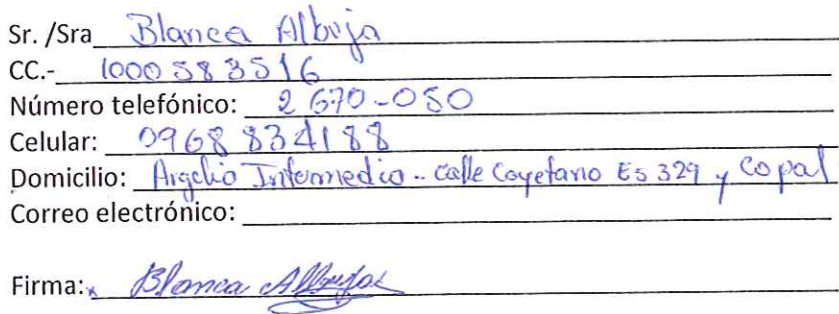 Sr. /Sra Blanca Albuja
CC.- 1000583516
Número telefónico: 2 670-050
Celular: 0968 834188
Domicilio: Argelia Intermedia - calle Cayetano E5 329 y Copal
Correo electrónico:
Firma: x Blanca Albuja